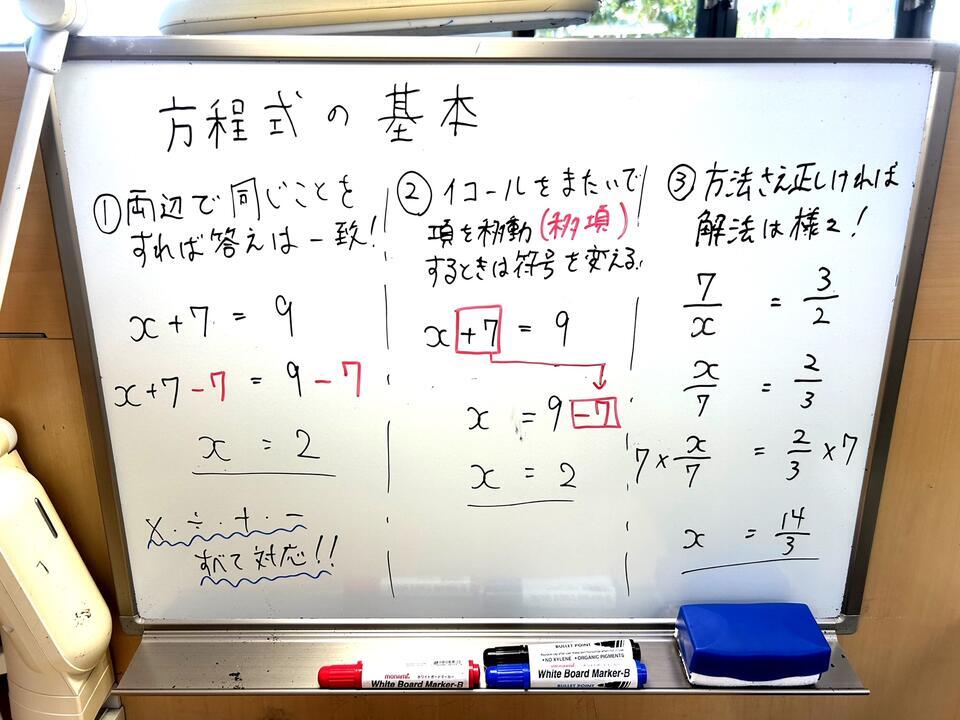 方程式の基本
①両辺で同じことを
すれば答えは一致!
x+7 = 9
x+7-7 = 9-7
x = 2
×.÷.+.-
すべて対応!!
②イコールをまたいで
項を移動(移項)
するときは符号を変える.
x+7 = 9
x = 9-7
x = 2
③方法さえ正しければ
解法は様々!
7/x = 3/2
x/7 = 2/3
7×x/7 = 2/3×7
x = 14/3
monami
ホワイトボードマーカー
White Board Marker-B
BULLET POINT
•NO XYLENE •ORGANIC PIGMENTS
monami
White Board Marker-B
BULLET POINT